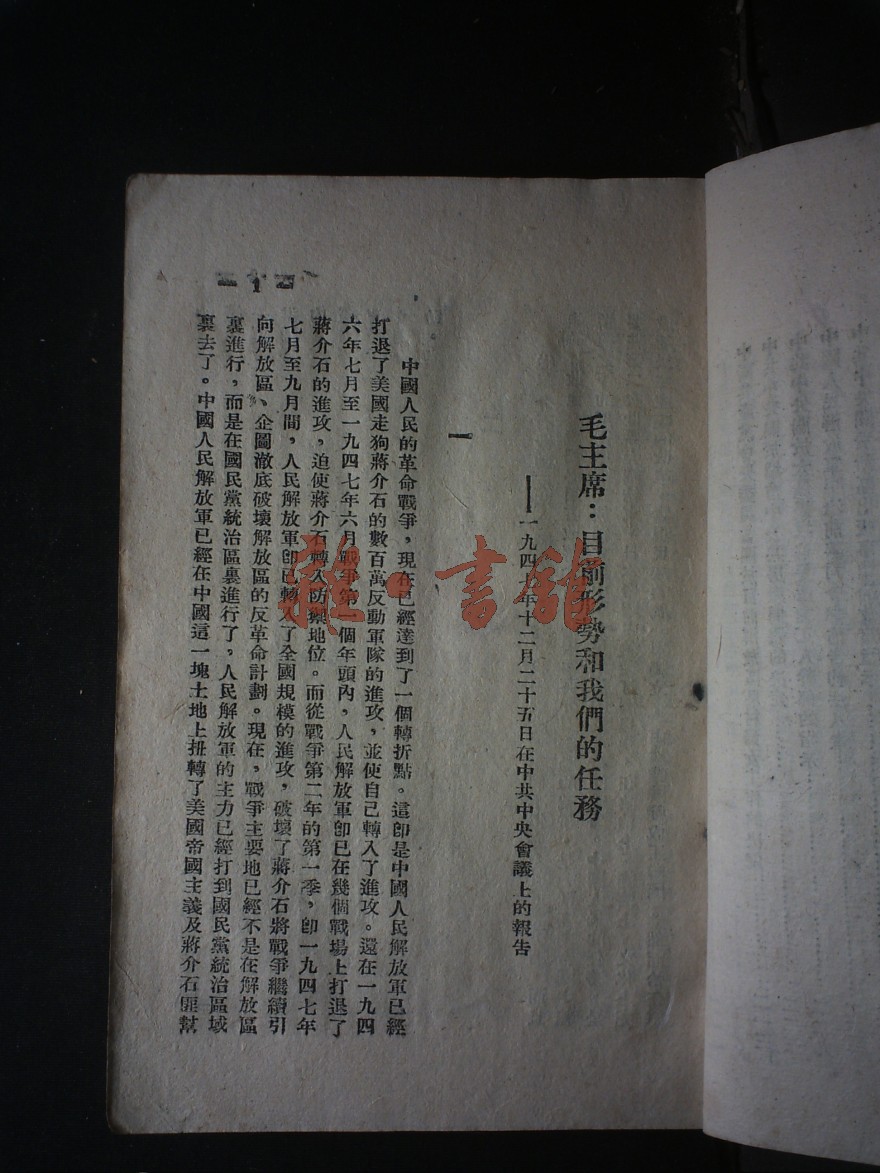 毛主席：目前形勢和我們的任務
——一九四七年十二月二十五日在中共中央會議上的報告
一
中國人民的革命戰爭，現在已經達到了一個轉折點。這卽是中國人民解放軍已經
打退了美國走狗蔣介石的數百萬反動軍隊的進攻，並使自己轉入了進攻。還在一九四
六年七月至一九四七年六月戰爭第一個年頭內，人民解放軍卽已在幾個戰場上打退了
蔣介石的進攻，迫使蔣介石轉入防禦地位。而從戰爭第二年的第一季，卽一九四七年
七月至九月間，人民解放軍卽已轉入了全國規模的進攻，破壞了蔣介石將戰爭繼續引
向解放區、企圖澈底破壞解放區的反革命計劃。現在，戰爭主要地已經不是在解放區
裏進行，而是在國民黨統治區裏進行了，人民解放軍的主力已經打到國民黨統治區域
裏去了。中國人民解放軍已經在中國這一塊土地上扭轉了美國帝國主義及蔣介石匪幫
雜·書館